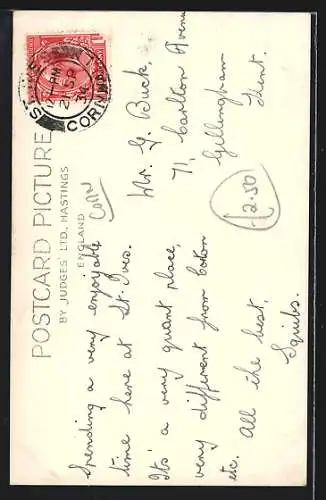 POSTCARD PICTURE
BY JUDGES' LTD, HASTINGS
ENGLAND
CORN
Spending a very enjoyable
time here at St. Ives.
It's a very quant place,
very different from
etc. All the best,
Squibs.
Mr. G. Buck,
71, Carlton Avenue
Gillingham
Kent.
£2.50
ST. IVES
SP
CORNWALL